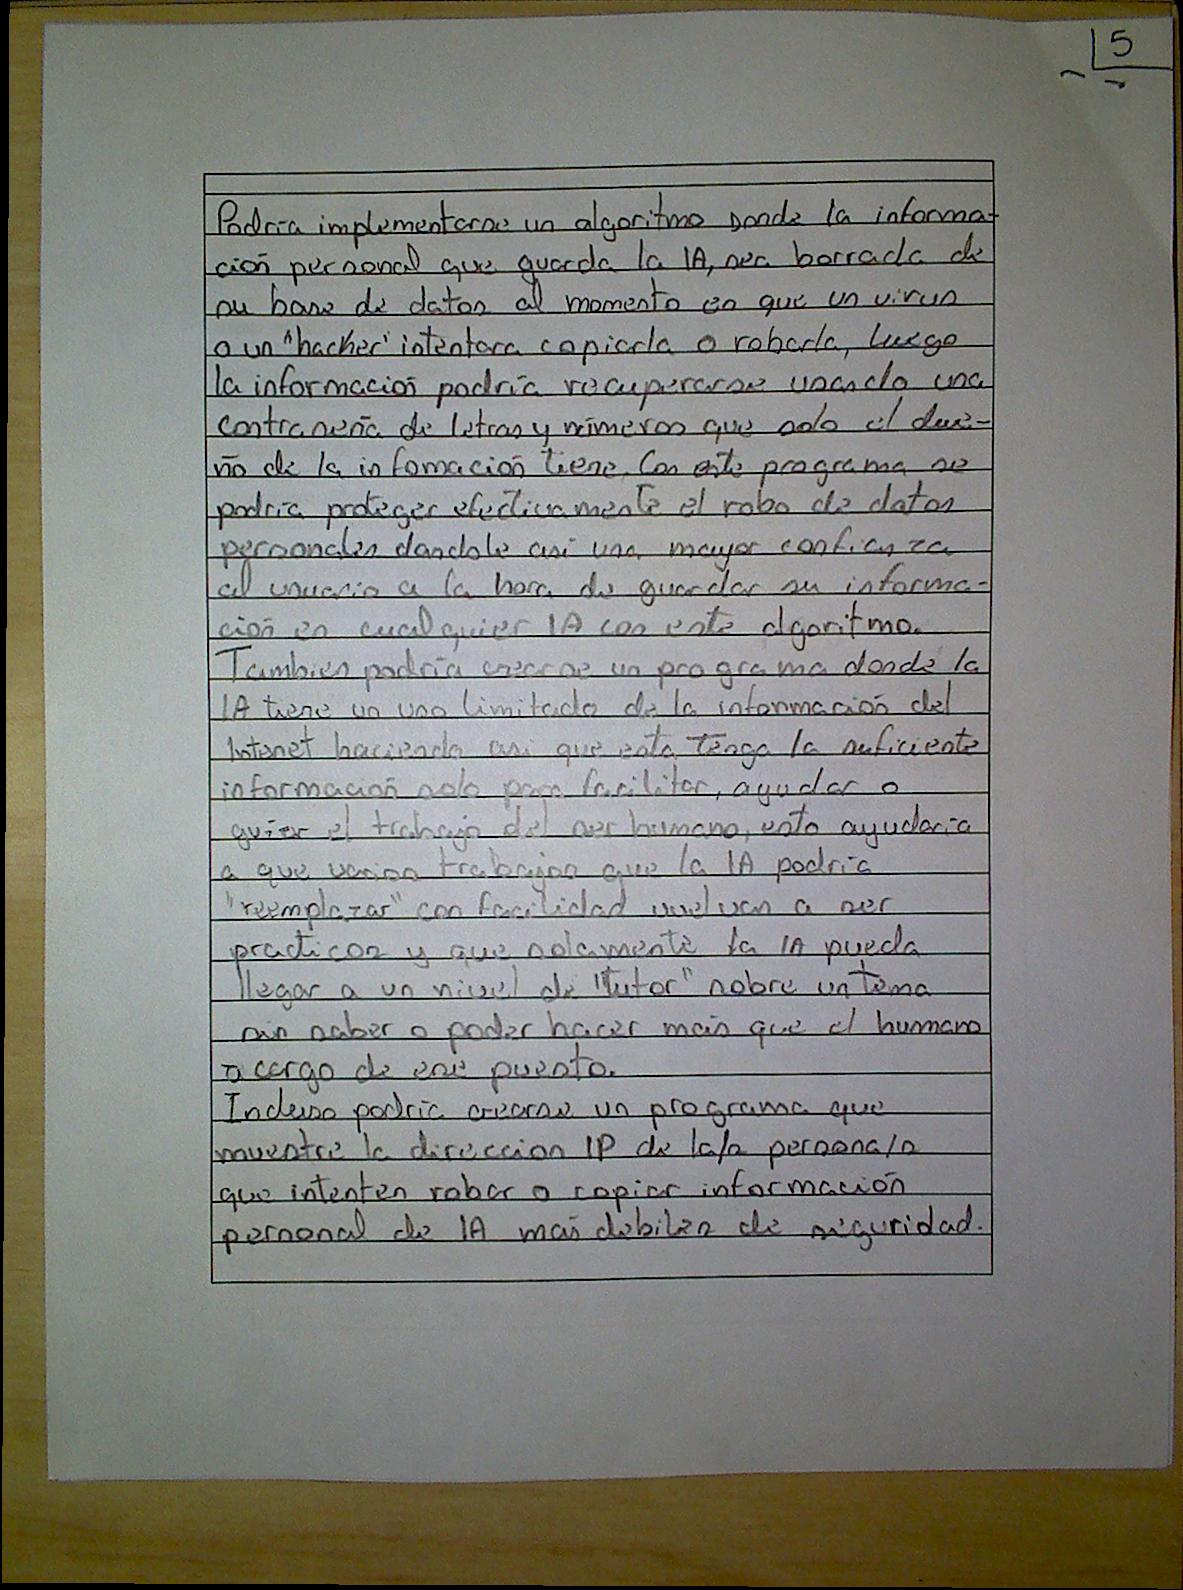 5
Podría implementarse un algoritmo Donde la informa-
ción personal que guarda la IA, sea borrada de
su base de datos al momento en que un virus
o un "hacker" intentara copiarla o robarla, luego
la información podría recuperarse usando una
contraseña de letras y números que solo el due-
ño de la infomación tiene. Con este programa se
podría proteger efectivamente el robo de datos
personales dandole así una mayor confianza
al usuario a la hora de guardar su informa-
ción en cualquier IA con este algoritmo.
Tambien podría crearse un programa donde la
IA tiene un uso limitado de la información del
Internet haciendo asi que esta tenga la suficiente
información solo para facilitar, ayudar o
guiar el trabajo del ser humano, esto ayudaría
a que varios trabajos que la IA podría
"reemplazar" con facilidad vuelvan a ser
practicos y que solamente la IA pueda
llegar a un nivel de "tutor" sobre un tema
sin saber o poder hacer más que el humano
a cargo de ese puesto.
Incluso podría crearse un programa que
muestre la direccion IP de la/s persona/s
que intenten robar o copiar información
personal de IA más debiles de seguridad.